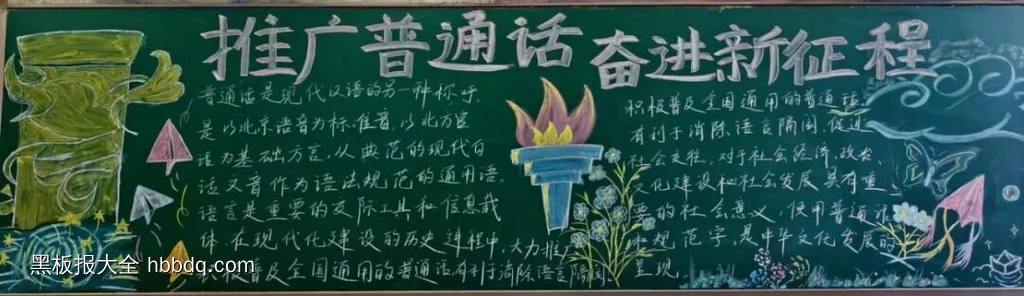 推广普通话 奋进新征程
普通话是现代汉语的另一种称呼,
是以北京语音为标准音,以北方官
话为基础方言,以典范的现代白
话文音作为语法规范的通用语.
语言是重要的交际工具和信息载
体.在现代化建设的历史进程中,大力推
积极普及全国通用的普通话有利于消除语言隔阂.
积极普及全国通用的普通话.
有利于消除语言隔阂.促进
社会交往,对于社会经济,政治.
文化建设和社会发展具有重
要的社会意义,使用普通话
和规范字,是中华文化发展的
呈现.
黑板报大全 hbbdq.com